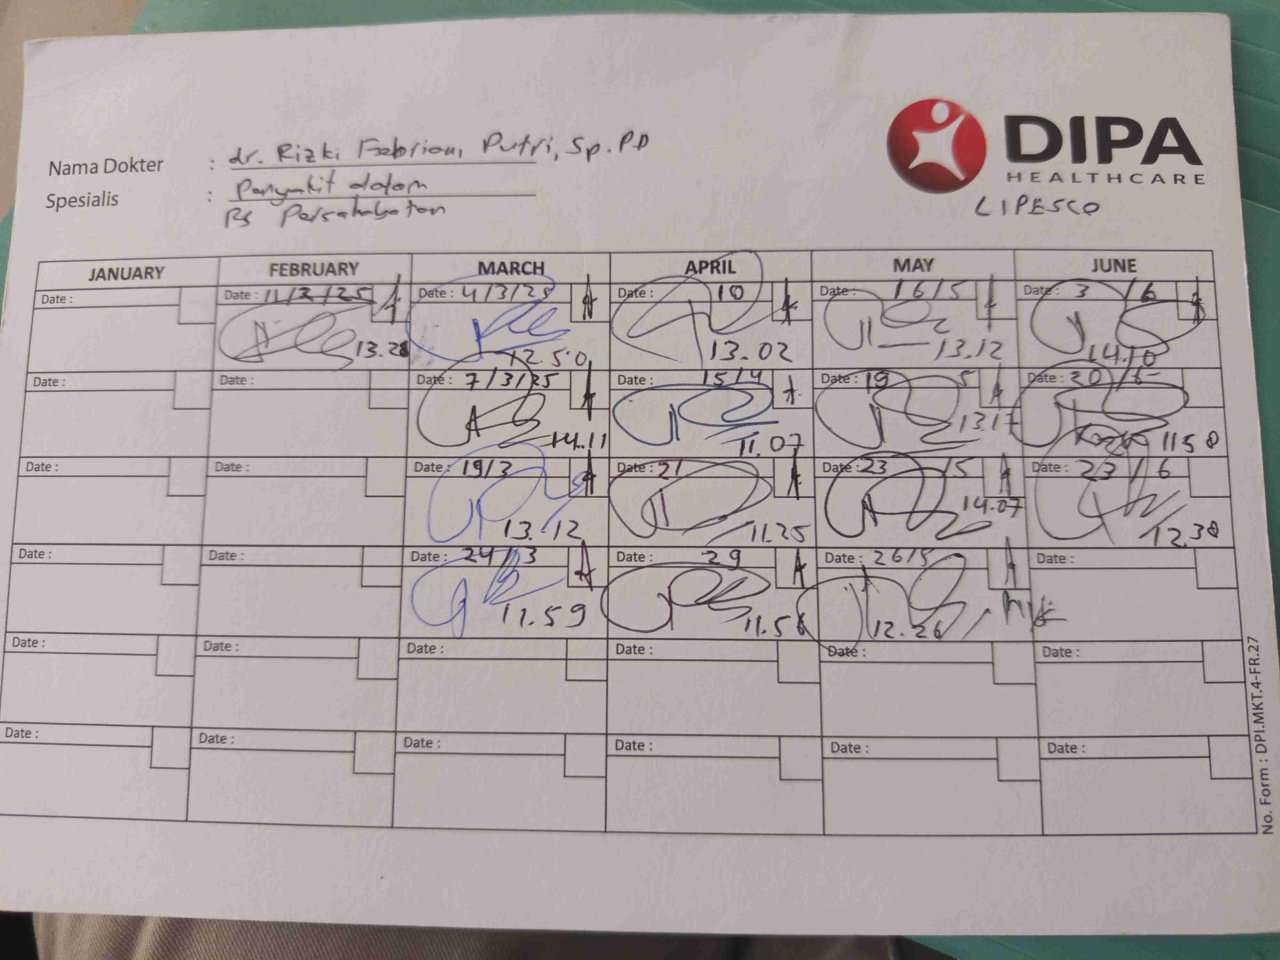 DIPA
HEALTHCARE
LIPESCO
Nama Dokter : dr. Rizki Febriani Putri, Sp.PD
Spesialis : Penyakit dalam
Rs Persahabatan
JANUARY FEBRUARY MARCH APRIL MAY JUNE
Date : Date : 11/2/25 Date : 4/3/25 Date : 10 Date : 16/5 Date : 3/6
13.28 12.50 13.02 13.12 14.10
Date : Date : Date : 7/3/25 Date : 15/4 Date : 19 5 Date : 20/6
14.11 11.07 13.17 11.58
Date : Date : Date : 19/3 Date : 21 Date : 23/5 Date : 23/6
13.12 11.25 14.07 12.38
Date : Date : Date : 24/3 Date : 29 Date : 26/5 Date :
11.59 11.56 12.26
Date : Date : Date : Date : Date : Date :
Date : Date : Date : Date : Date : Date :
No. Form : DPI.MKT.4-FR.27